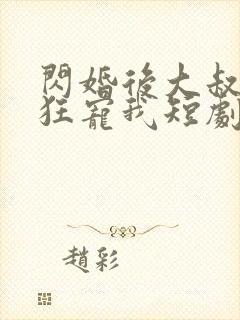 閃婚後大叔
狂寵我短劇
趙彩